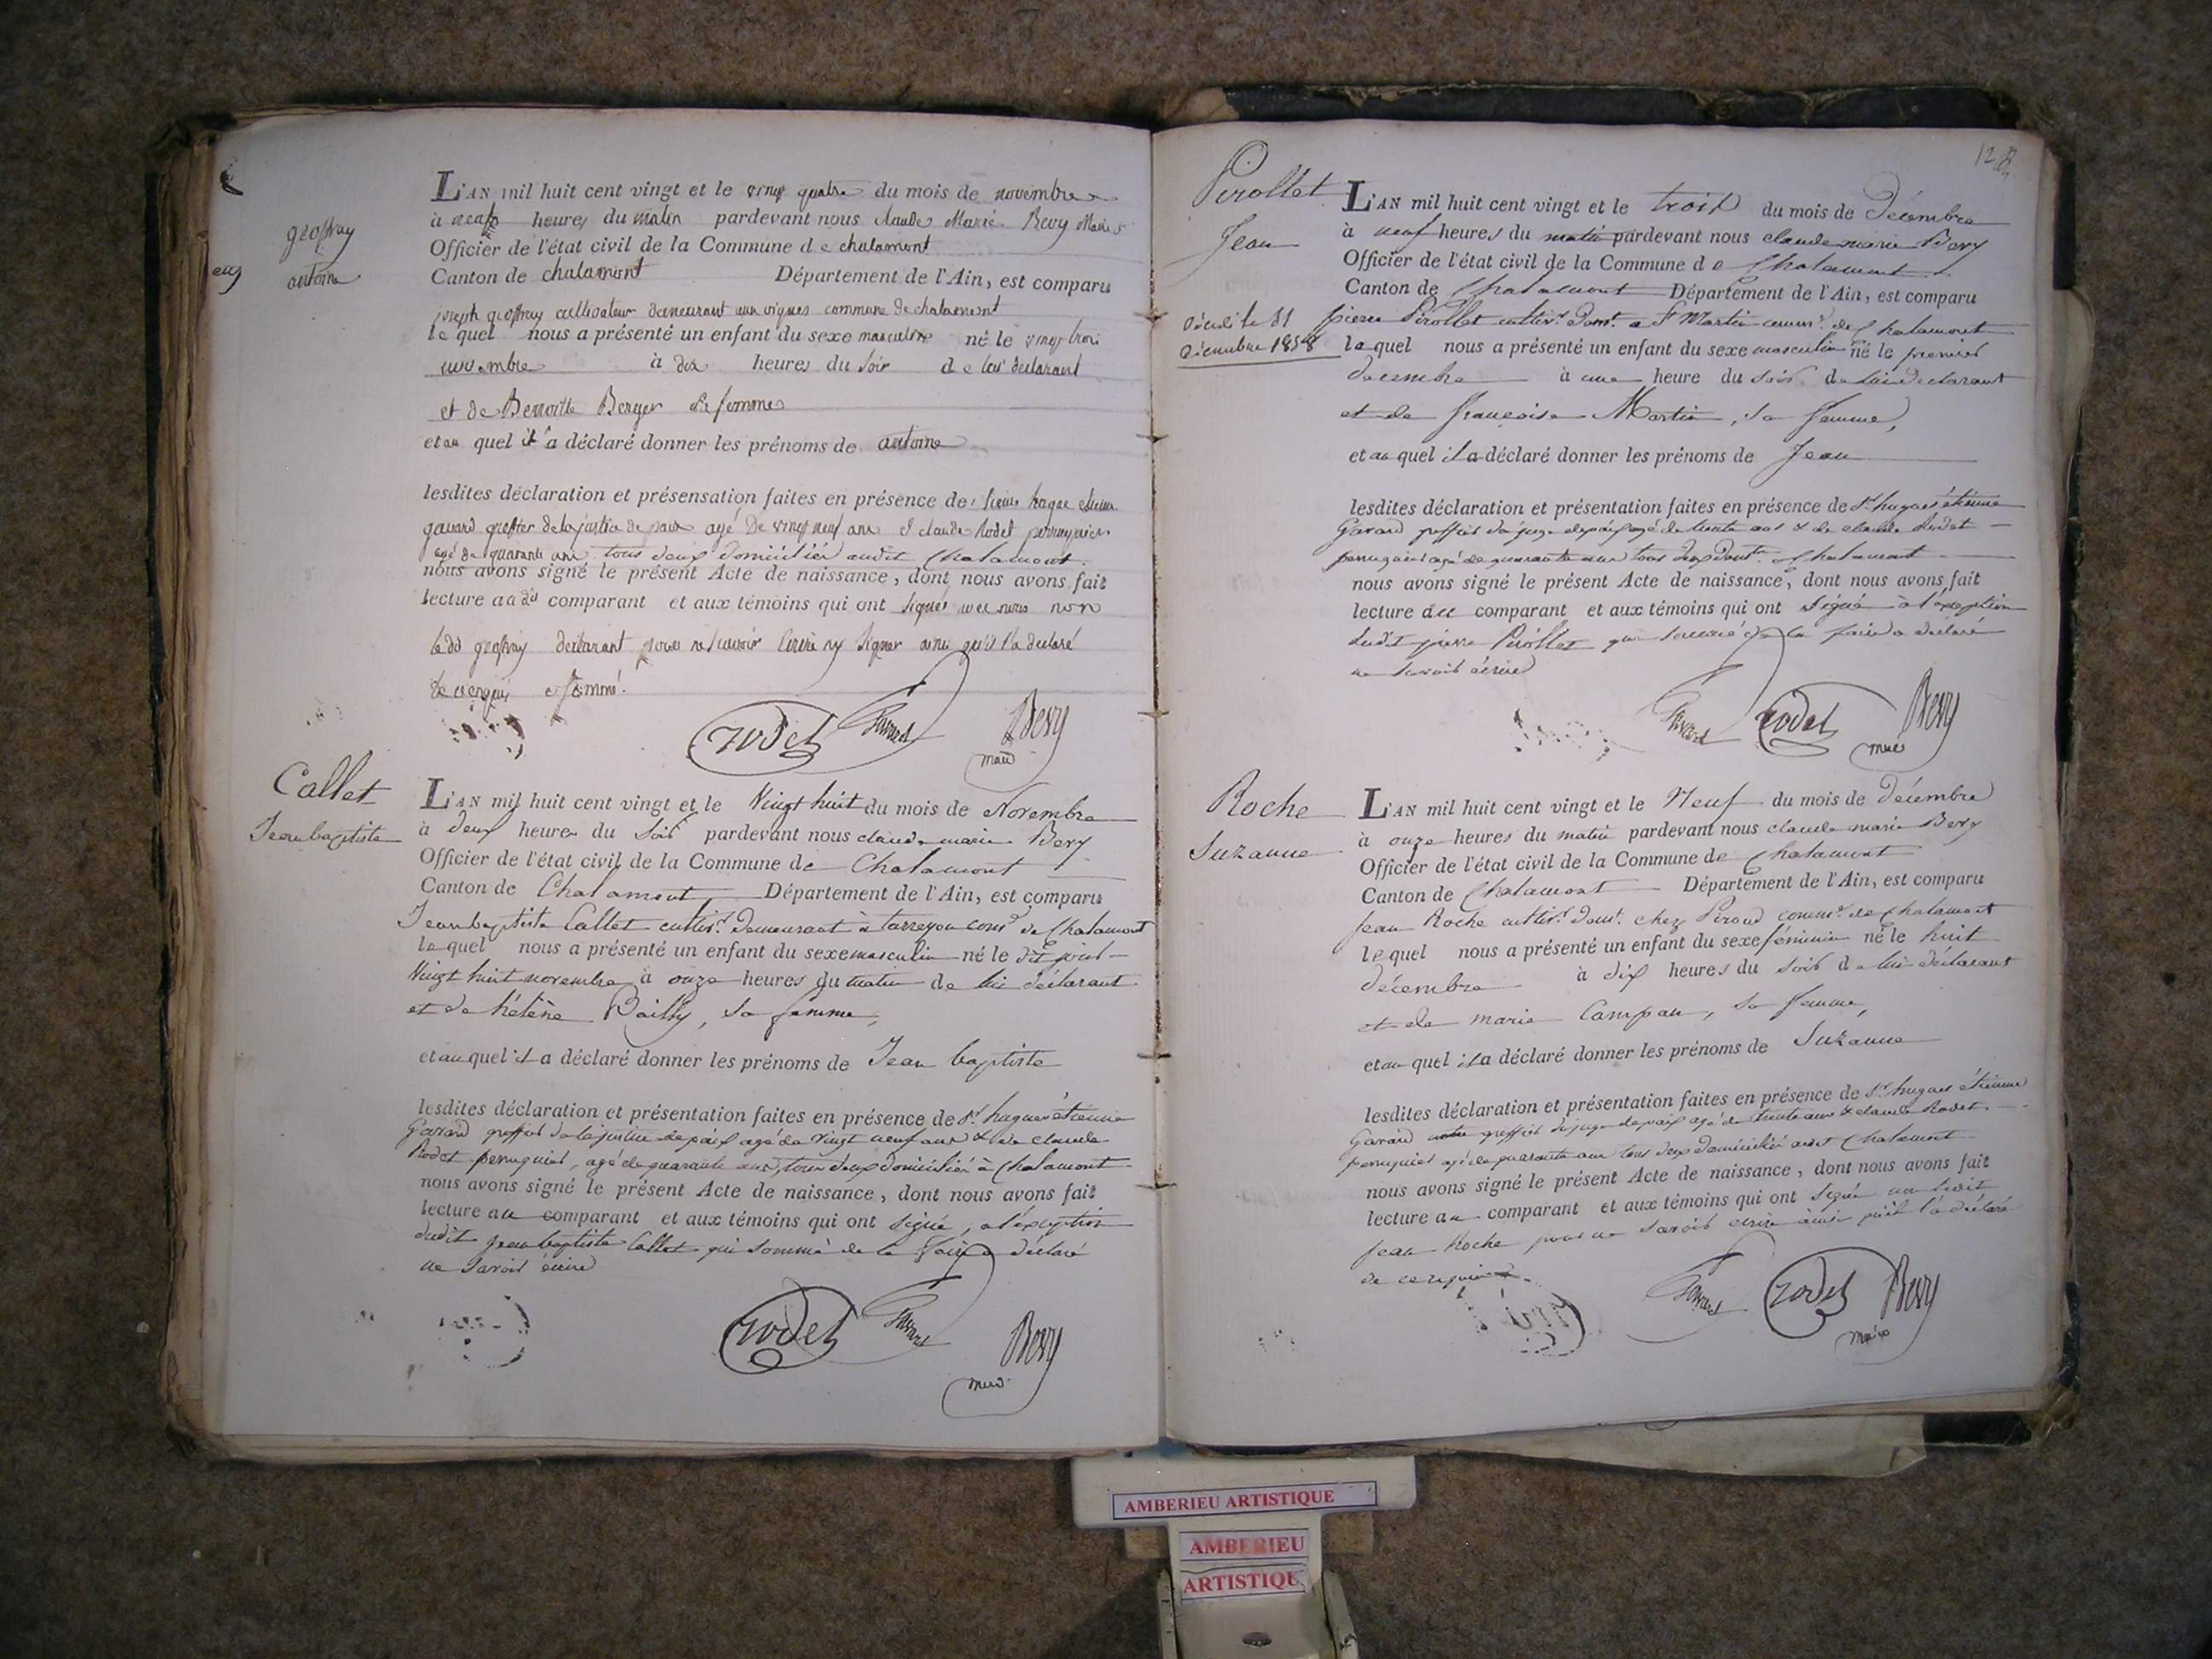 geoffray
antoine
L'AN mil huit cent vingt et le vingt quatre du mois de novembre
à neuf heures du matin pardevant nous claude Marie Bevy Maire
Officier de l'état civil de la Commune de chalamont
Canton de chalamont Département de l'Ain, est comparu
joseph geoffray cultivateur demeurant aux vignes commune de chalamont
le quel nous a présenté un enfant du sexe masculin né le vingt trois
novembre à dix heures du soir de lui déclarant
et de Benoitte Berger sa femme
et au quel il a déclaré donner les prénoms de antoine
lesdites déclaration et présensation faites en présence de hugue etienne
gavard greffier de la justice de paix agé De vingt neuf ans & claude Rodet perruquier
agé de quarante ans tous deux domiciliés audit Chalamont
nous avons signé le présent Acte de naissance, dont nous avons fait
lecture au dit comparant et aux témoins qui ont signés avec nous non
le dit geoffray déclarant pour ne savoir écrire ny signer ainsi qu'il l'a déclaré
de ce requis
rodet Gavard Bevy
maire
Callet
Jean baptiste
L'AN mil huit cent vingt et le Vingt huit du mois de Novembre
à deux heures du soir pardevant nous claude marie Bevy
Officier de l'état civil de la Commune de Chalamont
Canton de Chalamont Département de l'Ain, est comparu
Jean baptiste Callet cultivr. demeurant à de Chalamont
le quel nous a présenté un enfant du sexe masculin né le dit jour
Vingt huit novembre à onze heures du matin de lui déclarant
et de hélène Bailly, sa femme,
et au quel il a déclaré donner les prénoms de Jean baptiste
lesdites déclaration et présentation faites en présence de Sr. hugues étienne
Gavard greffier de la justice de paix agé de vingt neuf ans & de claude
Rodet perruquier, agé de quarante ans, tous deux domiciliés à Chalamont
nous avons signé le présent Acte de naissance, dont nous avons fait
lecture au comparant et aux témoins qui ont signé, à l'exception
dudit jean baptiste Callet qui sommé de le faire a déclaré
ne savoir écrire
rodet Gavard Bevy
maire
128
Pirollet
Jean
Décédé le 31
Décembre 1858
L'AN mil huit cent vingt et le trois du mois de Décembre
à neuf heures du matin pardevant nous claude marie Bevy
Officier de l'état civil de la Commune de Chalamont
Canton de Chalamont Département de l'Ain, est comparu
pierre Pirollet cultivr. demt. a St Martin commne. de Chalamont
le quel nous a présenté un enfant du sexe masculin né le premier
décembre à une heure du soir de lui déclarant
et de françoise Martin, sa femme,
et au quel il a déclaré donner les prénoms de Jean
lesdites déclaration et présentation faites en présence de Sr. hugues étienne
Gavard greffier du juge de paix agé de trente ans & de claude Rodet
perruquier agé de quarante ans tous deux domts. Chalamont
nous avons signé le présent Acte de naissance, dont nous avons fait
lecture au comparant et aux témoins qui ont signé à l'exception
dudit pierre Pirollet qui sommé de le faire a déclaré
ne savoir écrire
Gavard rodet Bevy
maire
Roche
Suzanne
L'AN mil huit cent vingt et le Neuf du mois de décembre
à onze heures du matin pardevant nous claude marie Bevy
Officier de l'état civil de la Commune de Chalamont
Canton de Chalamont Département de l'Ain, est comparu
Jean Roche cultivr. demt. chez Piroud commne. de Chalamont
le quel nous a présenté un enfant du sexe féminin né le huit
décembre à dix heures du soir de lui déclarant
et de marie Campan, sa femme,
et au quel il a déclaré donner les prénoms de Suzanne
lesdites déclaration et présentation faites en présence de Sr. hugues étienne
Gavard greffier du juge de paix agé de trente ans & claude Rodet
perruquier agé de quarante ans tous deux domiciliés audit Chalamont
nous avons signé le présent Acte de naissance, dont nous avons fait
lecture au comparant et aux témoins qui ont signé
jean Roche pour ne savoir écrire ainsi qu'il l'a déclaré
de ce requis
Gavard rodet Bevy
maire
AMBERIEU ARTISTIQUE
AMBERIEU
ARTISTIQU